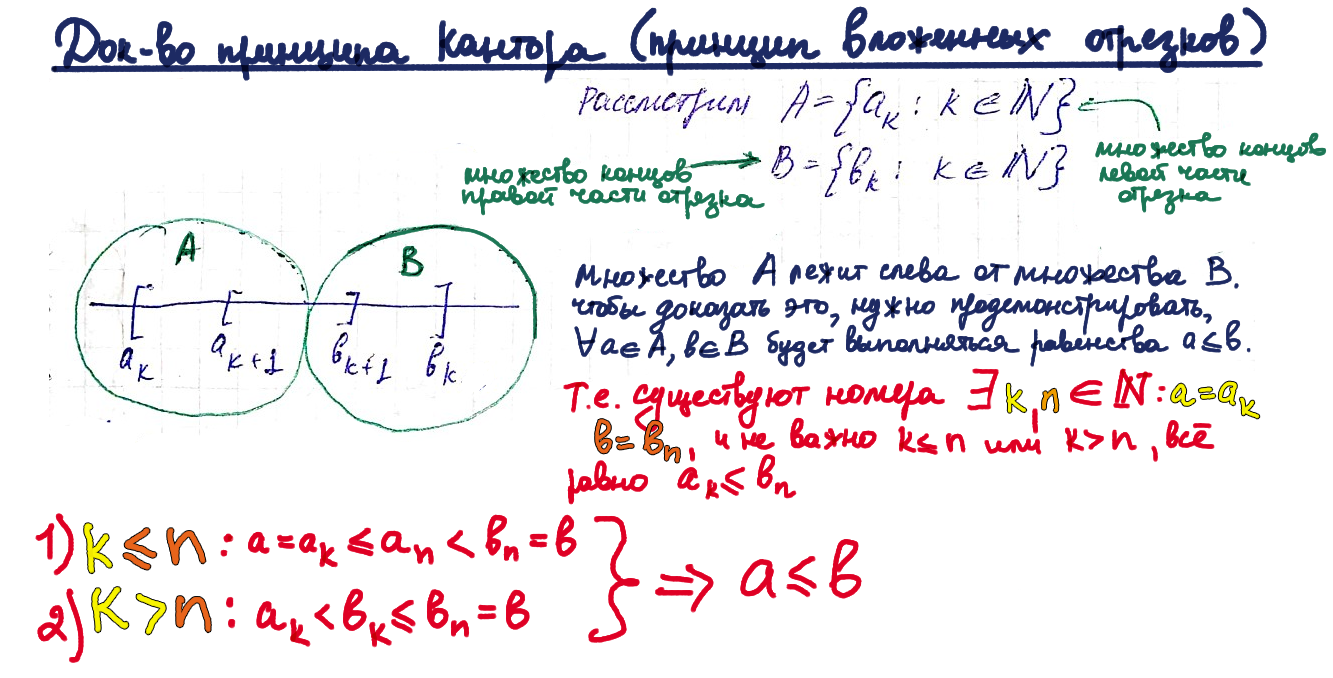 Док-во принципа Кантора (принцип вложенных отрезков)
Рассмотрим A={aₖ: k∈ℕ}
множество концов
левой части
отрезка
B={вₖ: k∈ℕ}
множество концов
правой части отрезка
A
B
aₖ
aₖ₊₁
вₖ₊₁
вₖ
множество A лежит слева от множества B.
чтобы доказать это, нужно продемонстрировать,
∀a∈A, в∈B будет выполняться равенства a≤в.
Т.е. существуют номера ∃k,n∈ℕ: a=aₖ
в=вₙ, и не важно k≤n или k>n, всё
равно aₖ≤вₙ
1) k≤n: a=aₖ≤aₙ<вₙ=в
2) k>n: aₖ<вₖ≤вₙ=в
} ⇒ a≤в